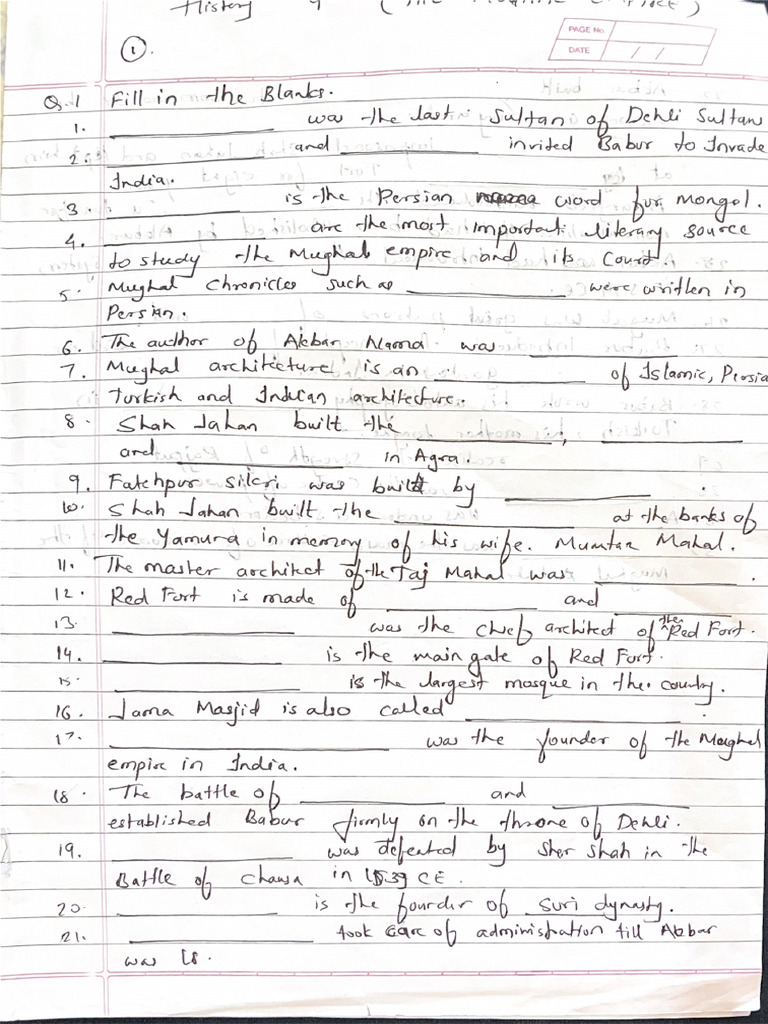 History
PAGE No.
DATE / /
①.
Q.1 Fill in the Blanks.
1. ____________ was the last Sultan of Dehli Sultan
2. ____________ and ____________ invited Babur to Invade
India.
3. ____________ is the Persian word for Mongol.
4. ____________ are the most important literary source
to study the Mughal empire and its Court.
5. Mughal chronicles such as ____________ were written in
Persian.
6. The author of Akbar Nama was ____________
7. Mughal architecture is an ____________ of Islamic, Persia
Turkish and Indian architecture.
8. Shah Jahan built the ____________, ____________
and ____________ in Agra.
9. Fatehpur sikri was built by ____________ .
10. Shah Jahan built the ____________ at the banks of
the Yamuna in memory of his wife. Mumtaz Mahal.
11. The master architect of the Taj Mahal was ____________ .
12. Red Fort is made of ____________ and ____________
13. ____________ was the chief architect of the Red Fort.
14. ____________ is the main gate of Red Fort.
15. ____________ is the largest mosque in the country.
16. Jama Masjid is also called ____________ .
17. ____________ was the founder of the Mughal
empire in India.
18. The battle of ____________ and ____________
established Babur firmly on the throne of Dehli.
19. ____________ was defeated by Sher Shah in the
Battle of Chausa in 1539 CE.
20. ____________ is the founder of Suri dynasty.
21. ____________ took care of administration till Akbar
was 18.